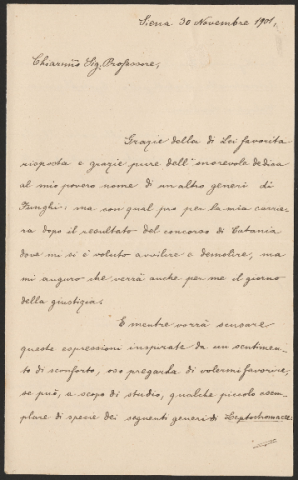 Siena 30 Novembre 1901.
Chiarmo Sig. Professore,
Grazie della di Lei favorita
risposta e grazie pure dell'onorevole dedica
al mio povero nome di un altro generi di
Funghi: ma con qual pro per la mia carrie-
ra dopo il resultato del concorso di Catania
dove mi si è voluto avvilire e demolire, ma
mi auguro che verrà anche per me il giorno
della giustizia.
E mentre vorrà scusare
queste espressioni inspirate da un sentimen-
to di sconforto, oso pregarla di volermi favorire,
se può, a scopo di studio, qualche piccolo esem-
plare di specie dei seguenti generi di